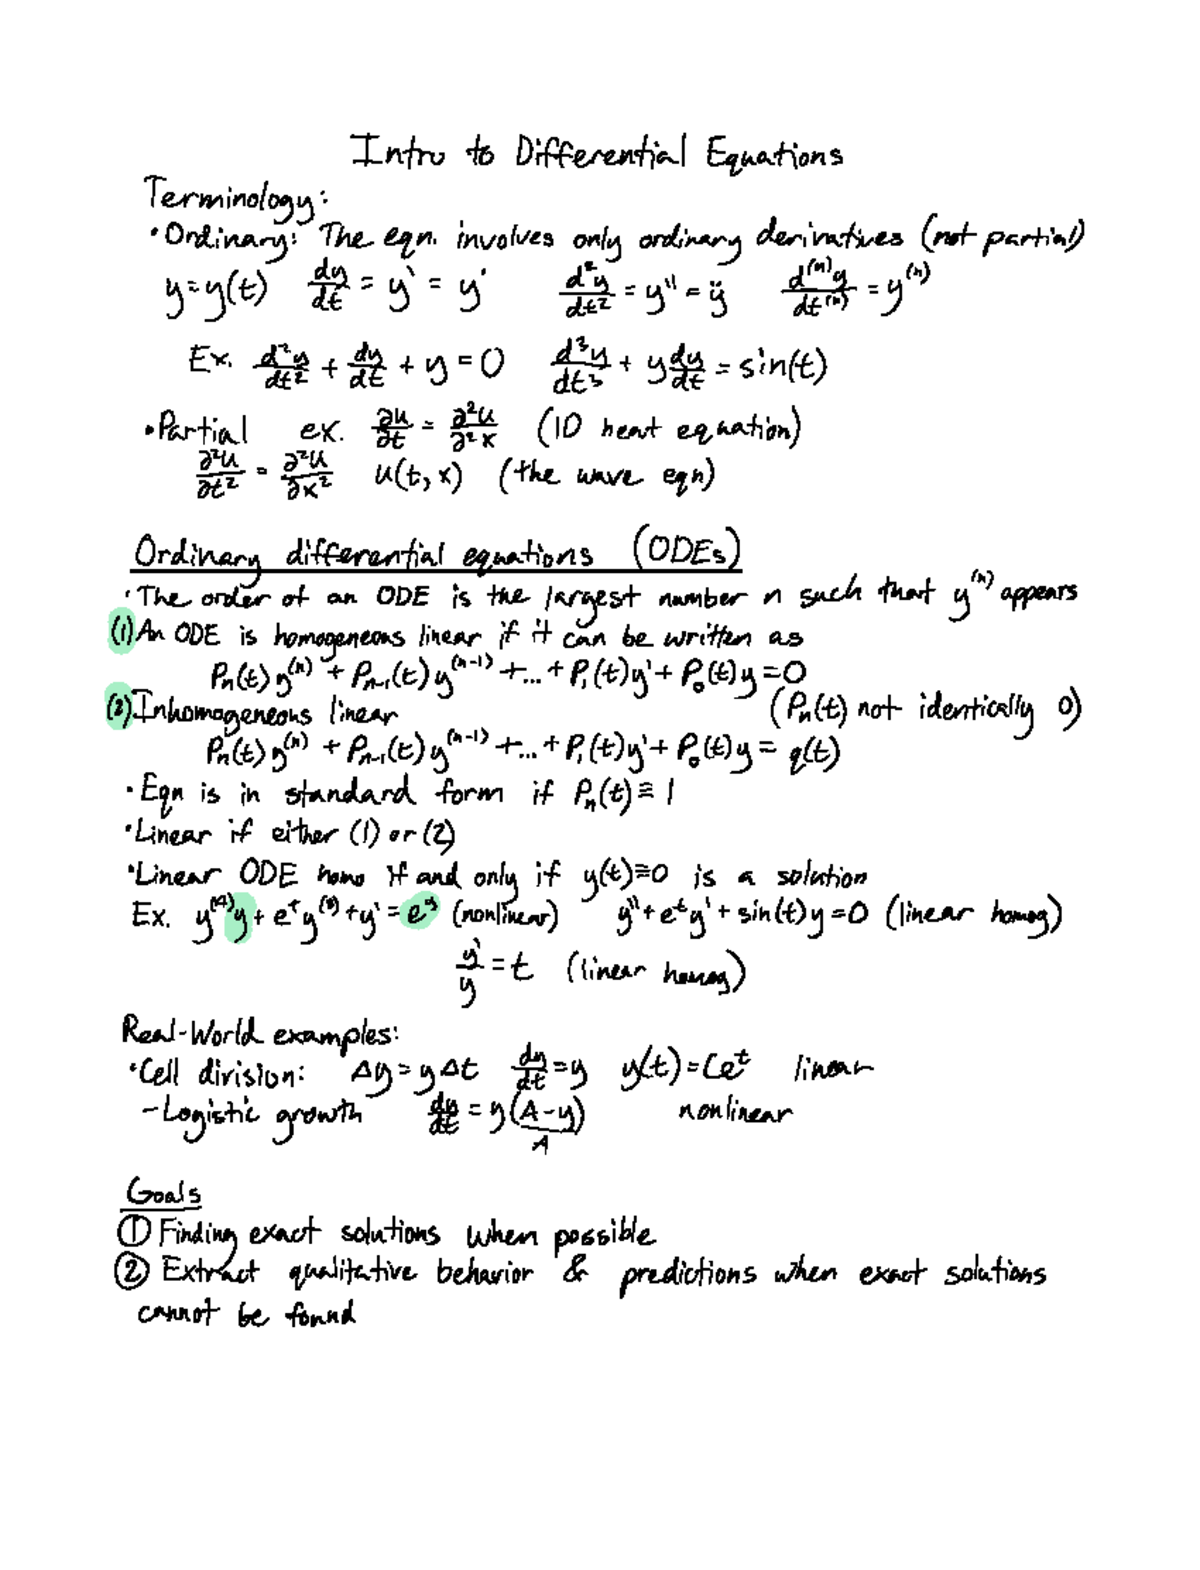 Intro to Differential Equations
Terminology:
• Ordinary: The eqn. involves only ordinary derivatives (not partial)
y = y(t) dy/dt = y' = y˙ d²y/dt² = y'' = ÿ d⁽ⁿ⁾y/dt⁽ⁿ⁾ = y⁽ⁿ⁾
Ex. d²y/dt² + dy/dt + y = 0 d³y/dt³ + y dy/dt = sin(t)
• Partial ex. ∂u/∂t = ∂²u/∂²x (1D heat equation)
∂²u/∂t² = ∂²u/∂x² u(t, x) (the wave eqn)
Ordinary differential equations (ODEs)
• The order of an ODE is the largest number n such that y⁽ⁿ⁾ appears
(1) An ODE is homogeneous linear if it can be written as
Pₙ(t) y⁽ⁿ⁾ + Pₙ₋₁(t) y⁽ⁿ⁻¹⁾ + ... + P₁(t) y' + P₀(t) y = 0
(2) Inhomogeneous linear (Pₙ(t) not identically 0)
Pₙ(t) y⁽ⁿ⁾ + Pₙ₋₁(t) y⁽ⁿ⁻¹⁾ + ... + P₁(t) y' + P₀(t) y = q(t)
• Eqn is in standard form if Pₙ(t) ≡ 1
• Linear if either (1) or (2)
• Linear ODE homo if and only if y(t) ≡ 0 is a solution
Ex. y⁽⁴⁾y + eᵗ y⁽³⁾ + y' = eʸ (nonlinear) y'' + eᵗ y' + sin(t) y = 0 (linear homog)
y'/y = t (linear homog)
Real-World examples:
• Cell division: Δy = y Δt dy/dt = y y(t) = Ceᵗ linear
- Logistic growth dy/dt = y (A-y)/A nonlinear
Goals
① Finding exact solutions when possible
② Extract qualitative behavior & predictions when exact solutions
cannot be found